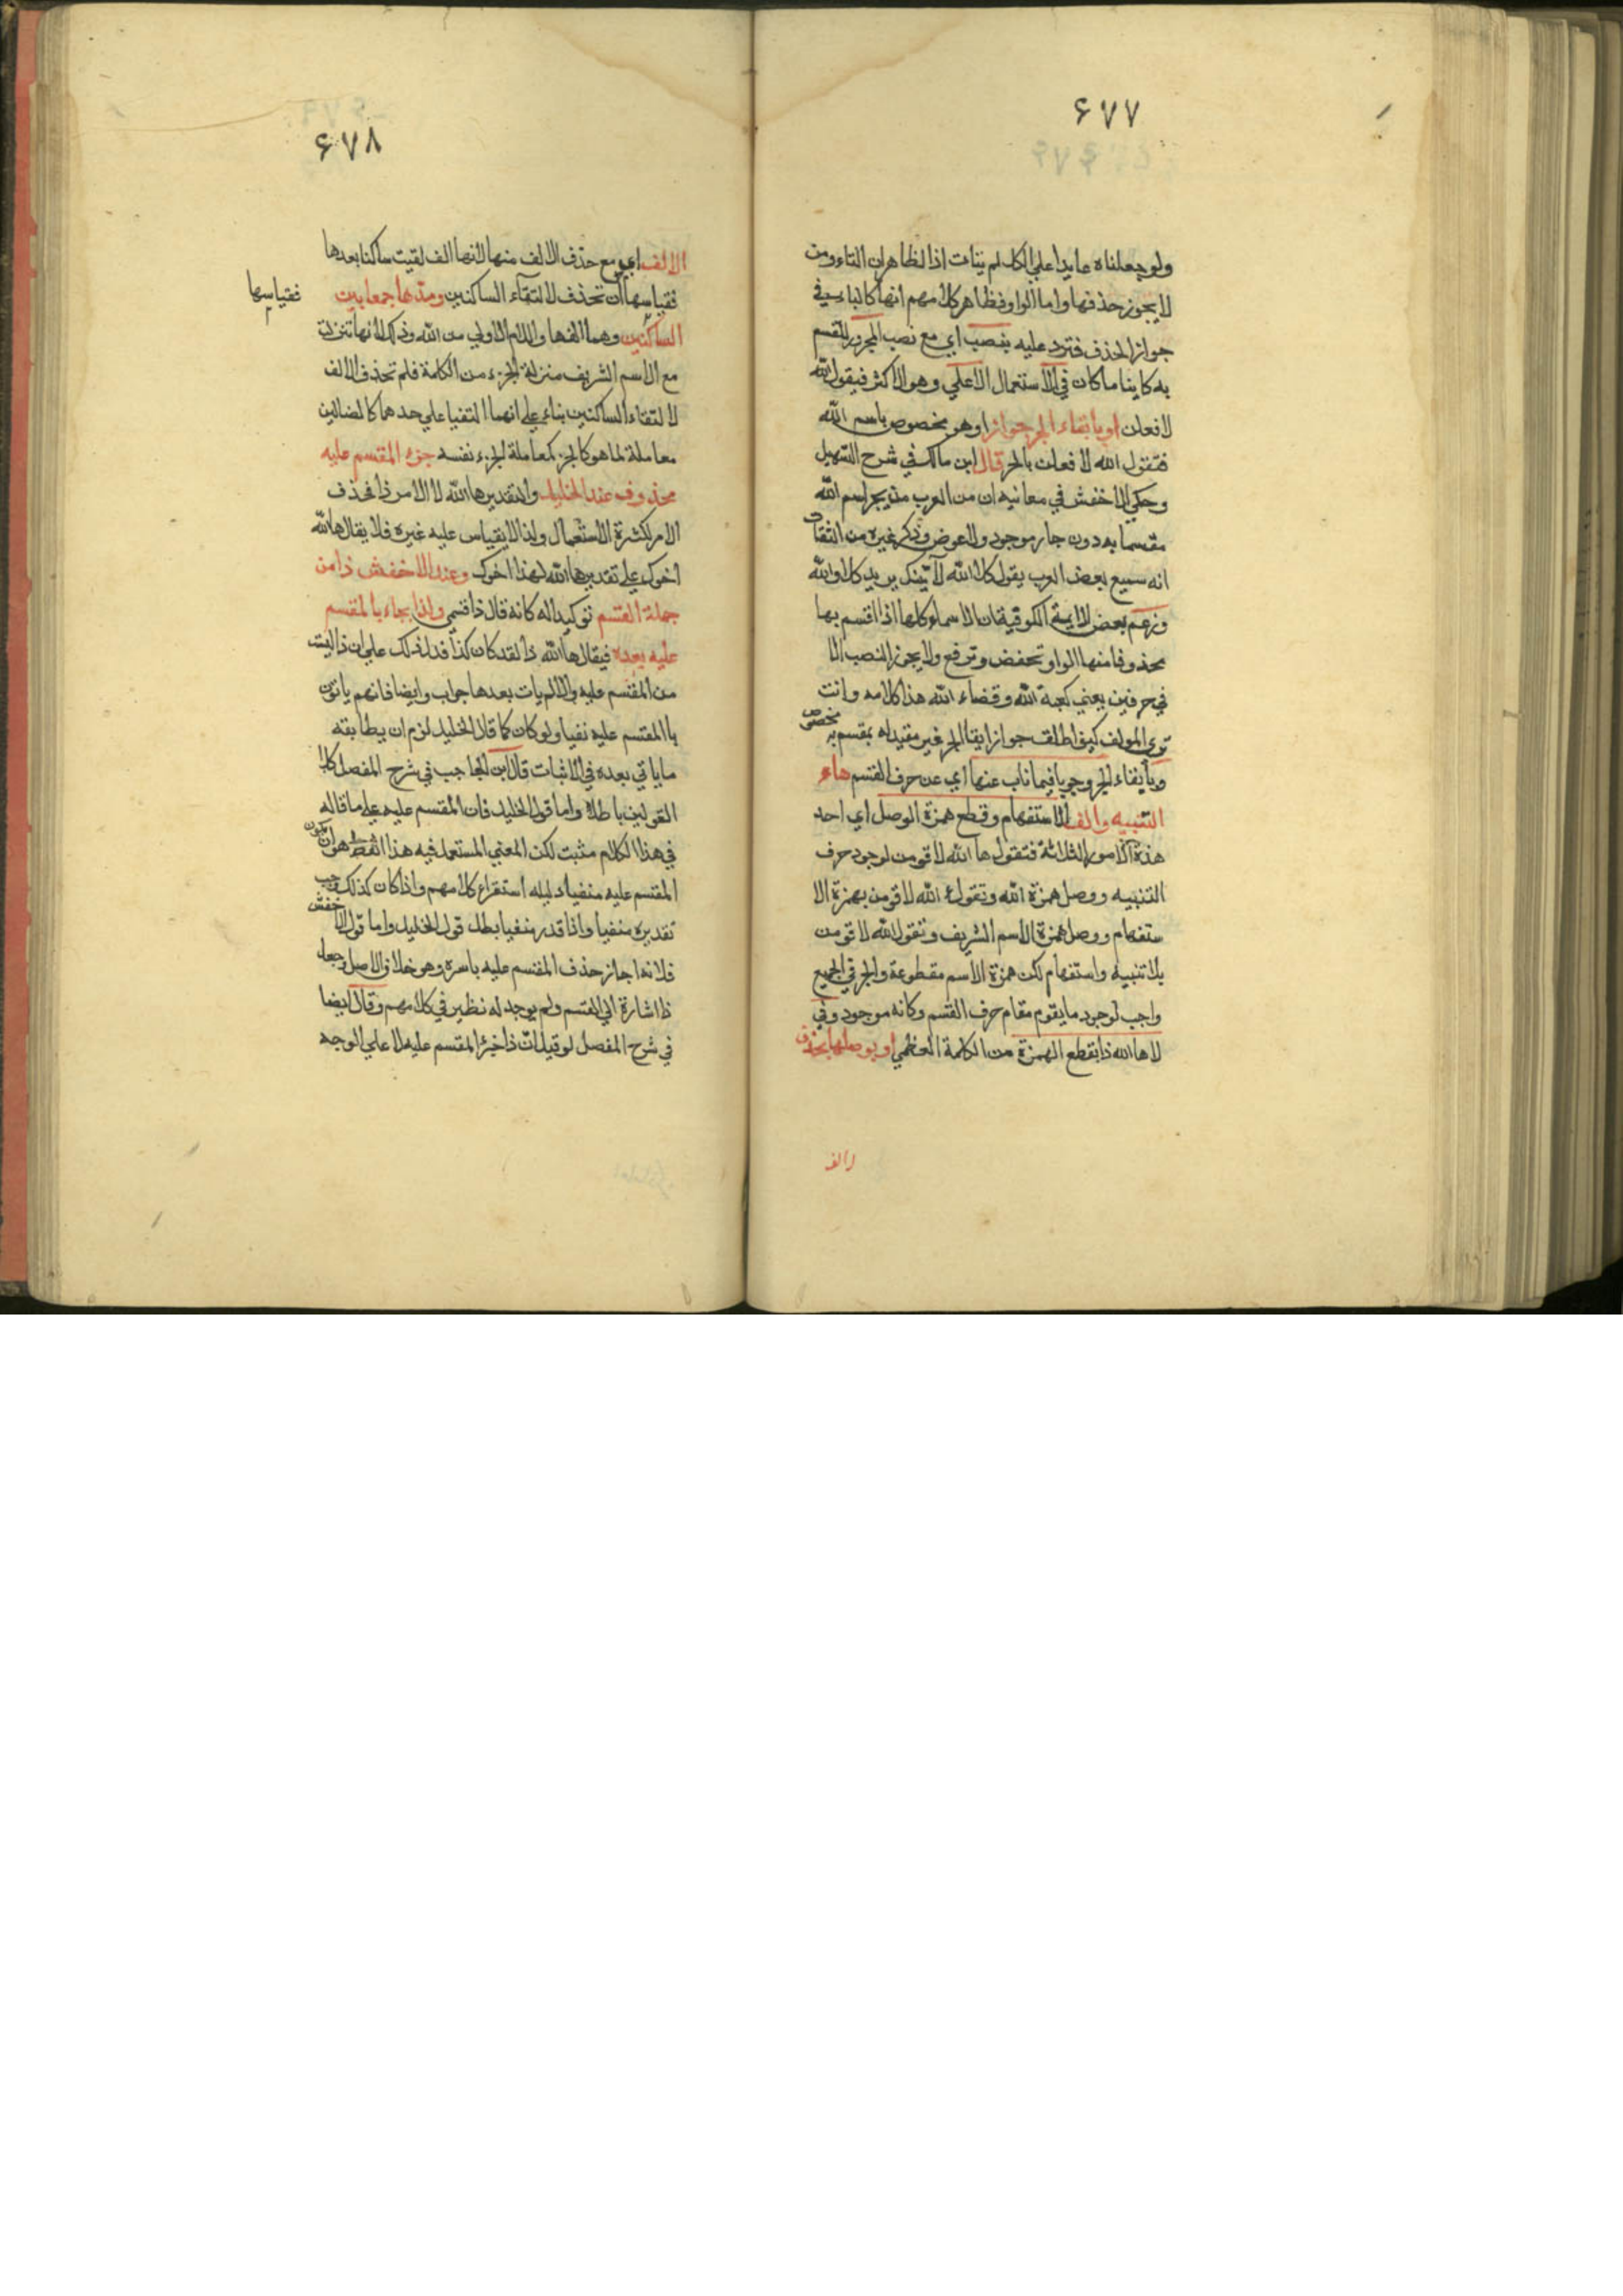 ۶۷۷
ولو جعلناه عايدا علي الكل لم يتات اذا لظاهر ان التاء ومن
لا يجوز حذفها واما الواو فظاهر كلامهم انها كالباء في
جواز الحذف فترد عليه بنصب اي مع نصب المجرور للقسم
به كاينا ما كان في الاستعمال الاعلي وهو الاكثر فيقول الله
لافعلن او بابقاء الجر جوازا وهو مخصوص باسم الله
فتقول الله لافعلن بالجر قال ابن مالك في شرح التسهيل
وحكي الاخفش في معانيه ان من العرب من يجر اسم الله
مقسما به دون جار موجود ولا عوض وذكر غيره من الثقات
انه سمع بعض العرب يقول كلا الله لآتينك يريد كلا والله
وزعم بعض الايمة الكوفية ان الاسماء كلها اذا اقسم بها
محذوفا منها الواو تخفض وترفع ولا يجوز النصب الا
في حرفين يعني كعبة الله وقضاء الله هذا كلامه وانت
تري المولف كيف اطلق جواز ابقا الجر غير مقيد له بمقسم به مخصوص
وبابقاء الجر وجوبا فيما ناب عنها اي عن حرف القسم هاء
التنبيه والف الاستفهام وقطع همزة الوصل اي احد
هذه الامور الثلاثة فتقول ها الله لاقومن لوجود حرف
التنبيه ووصل همزة الله وتقول ءالله لاقومن بهمزة الا
ستفهام ووصل همزة الاسم الشريف وتقول الله لاقومن
بلا تنبيه واستفهام لكن همزة الاسم مقطوعة والجر في الجميع
واجب لوجود ما يقوم مقام حرف القسم وكانه موجود وفي
لا ها الله ذا بقطع الهمزة من الكلمة العظمي او بوصلها بحذف
الالف
۶۷۸
الالف اي مع حذف الالف منها لانها الف لقيت ساكنا بعدها
فقياسها ان تحذف لالتقاء الساكنين ومدها جمعا بين
فقياسها
الساكنين وهما الفها واللام الاولي من الله وذلك لانها تنزلت
مع الاسم الشريف منزلة الجزء من الكلمة فلم تحذف الالف
لالتقاء الساكنين بناء علي انهما التقيا علي حدهما كالضالين
معاملة لما هو كالجزء كمعاملة الجزء نفسه جزء المقسم عليه
محذوف عند الخليل والتقدير ها الله لا الامر ذا فحذف
الامر لكثرة الاستعمال ولذا لا يقاس عليه غيره فلا يقال ها الله
اخوك علي تقدير ها الله لهذا اخوك وعند الاخفش ذا من
جملة القسم توكيدا له كانه قال ذا قسمي ولذا يجاء بالمقسم
عليه بعده فيقال ها الله ذا لقد كان كذا فدل ذلك علي ان ذا ليست
من المقسم عليه والا لم يات بعدها جواب وايضا فانهم ياتون
بالمقسم عليه نفيا ولو كان كما قال الخليل لزم ان يطابقه
ما ياتي بعده في الاثبات قال ابن الحاجب في شرح المفصل كلا
القولين باطل واما قول الخليل فان المقسم عليه علي ما قاله
في هذا الكلام مثبت لكن المعني المستعمل فيه هذا اللفظ هو ان يكون
المقسم عليه منفيا دليله استقراء كلامهم واذا كان كذلك وجب
تقديره منفيا واذا قدر منفيا بطل قول الخليل واما قول الاخفش
فلانه اجاز حذف المقسم عليه باسره وهو خلاف الاصل وجعل
ذا اشارة الي القسم ولم يوجد له نظير في كلامهم وقال ايضا
في شرح المفصل لو قيل ان ذا خبر المقسم عليه لا علي الوجه